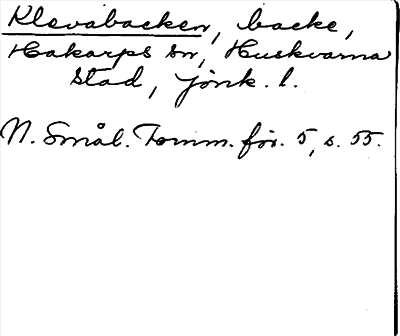 Klevabacken, backe,
Hakarps sn, Huskvarna
stad, Jönk. l.
N. Smål. Fornm. för. 5, s. 55.